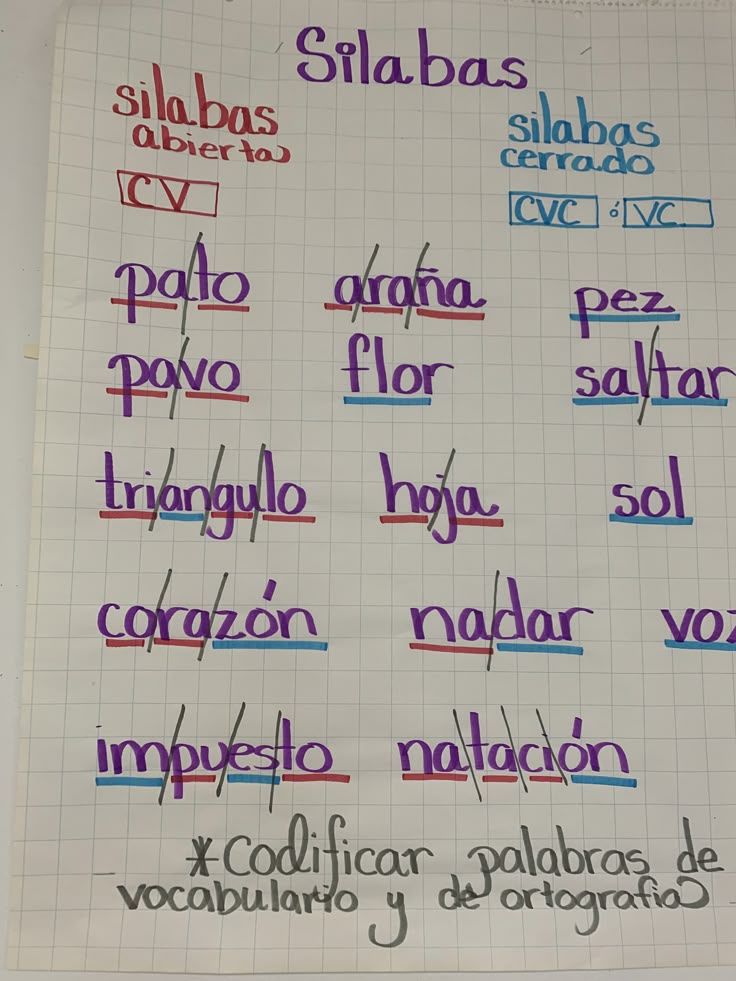 Silabas
silabas silabas
abiertas cerrado
CV CVC ó VC
pa/to a/ra/ña pez
pa/vo flor sal/tar
tri/an/gu/lo ho/ja sol
co/ra/zón na/dar voz
im/pu/es/to na/ta/ci/ón
*Codificar palabras de
vocabulario y de ortografia